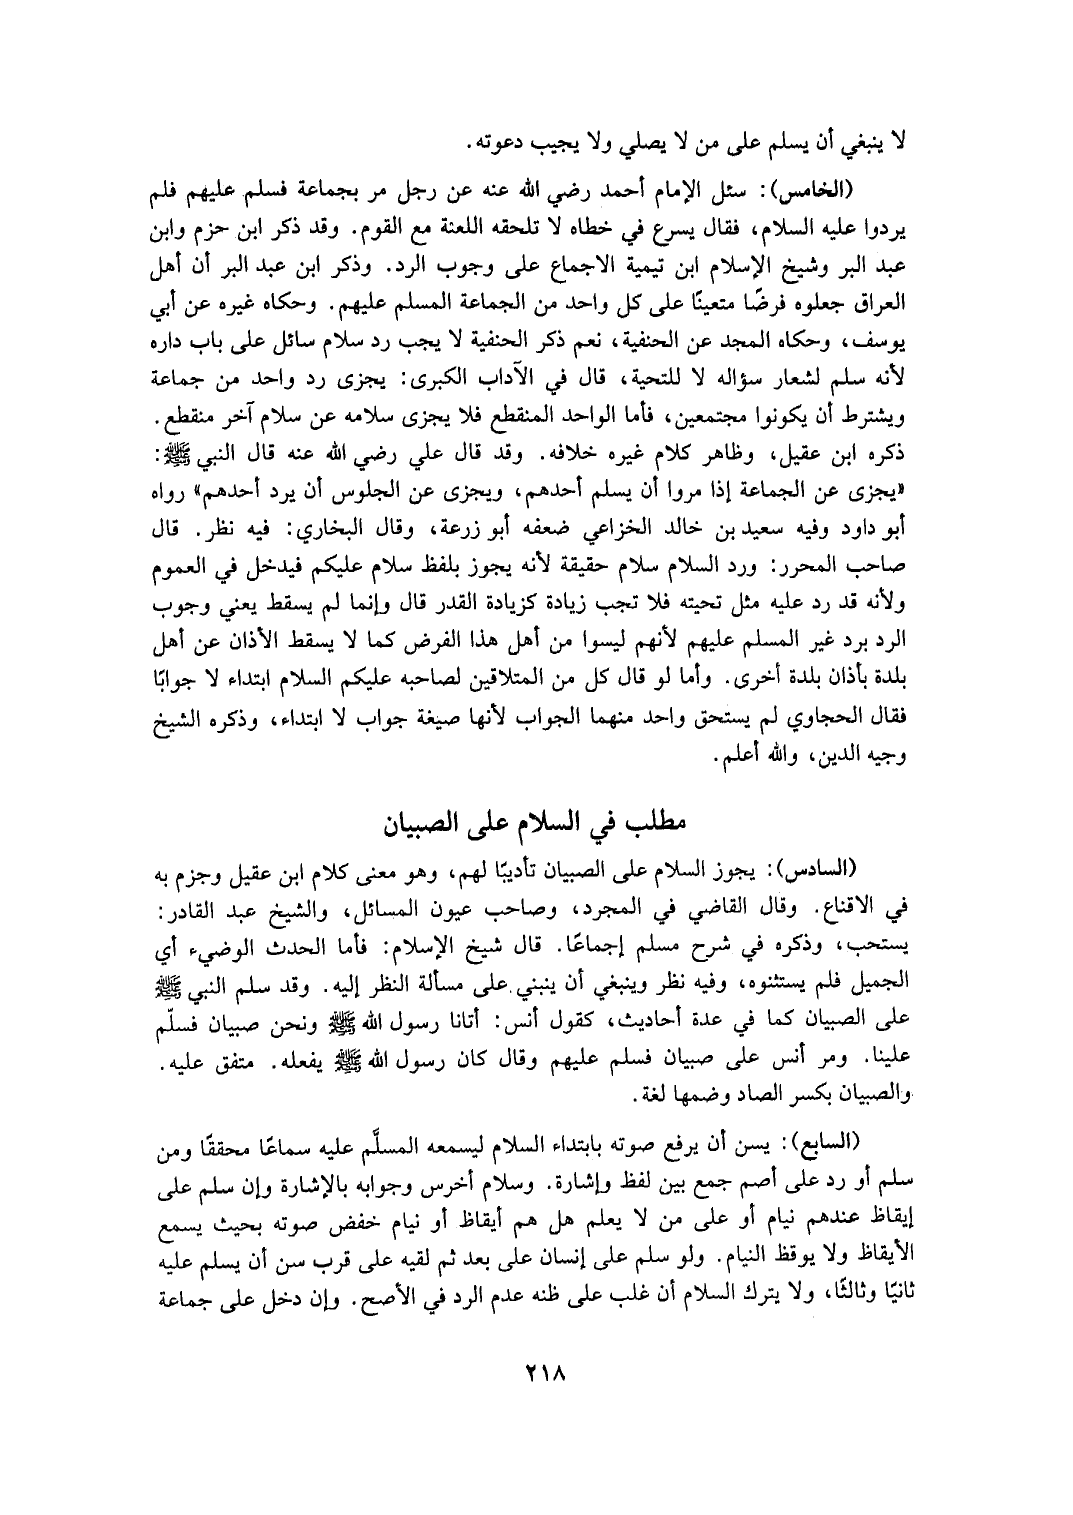 لا ينبغي أن يسلم على من لا يصلي ولا يجيب دعوته.
(الخامس): سئل الإمام أحمد رضي الله عنه عن رجل مر بجماعة فسلم عليهم فلم
يردوا عليه السلام، فقال يسرع في خطاه لا تلحقه اللعنة مع القوم. وقد ذكر ابن حزم وابن
عبد البر وشيخ الإسلام ابن تيمية الاجماع على وجوب الرد. وذكر ابن عبد البر أن أهل
العراق جعلوه فرضًا متعينًا على كل واحد من الجماعة المسلم عليهم. وحكاه غيره عن أبي
يوسف، وحكاه المجد عن الحنفية، نعم ذكر الحنفية لا يجب رد سلام سائل على باب داره
لأنه سلم لشعار سؤاله لا للتحية، قال في الآداب الكبرى: يجزى رد واحد من جماعة
ويشترط أن يكونوا مجتمعين، فأما الواحد المنقطع فلا يجزى سلامه عن سلام آخر منقطع.
ذكره ابن عقيل، وظاهر كلام غيره خلافه. وقد قال علي رضي الله عنه قال النبي ﷺ:
«يجزى عن الجماعة إذا مروا أن يسلم أحدهم، ويجزى عن الجلوس أن يرد أحدهم» رواه
أبو داود وفيه سعيد بن خالد الخزاعي ضعفه أبو زرعة، وقال البخاري: فيه نظر. قال
صاحب المحرر: ورد السلام سلام حقيقة لأنه يجوز بلفظ سلام عليكم فيدخل في العموم
ولأنه قد رد عليه مثل تحيته فلا تجب زيادة كزيادة القدر قال وإنما لم يسقط يعني وجوب
الرد برد غير المسلم عليهم لأنهم ليسوا من أهل هذا الفرض كما لا يسقط الأذان عن أهل
بلدة بأذان بلدة أخرى. وأما لو قال كل من المتلاقين لصاحبه عليكم السلام ابتداء لا جوابًا
فقال الحجاوي لم يستحق واحد منهما الجواب لأنها صيغة جواب لا ابتداء، وذكره الشيخ
وجيه الدين، والله أعلم.
مطلب في السلام على الصبيان
(السادس): يجوز السلام على الصبيان تأديبًا لهم، وهو معنى كلام ابن عقيل وجزم به
في الاقناع. وقال القاضي في المجرد، وصاحب عيون المسائل، والشيخ عبد القادر:
يستحب، وذكره في شرح مسلم إجماعًا. قال شيخ الإسلام: فأما الحدث الوضيء أي
الجميل فلم يستثنوه، وفيه نظر وينبغي أن ينبني على مسألة النظر إليه. وقد سلم النبي ﷺ
على الصبيان كما في عدة أحاديث، كقول أنس: أتانا رسول الله ﷺ ونحن صبيان فسلّم
علينا. ومر أنس على صبيان فسلم عليهم وقال كان رسول الله ﷺ يفعله. متفق عليه.
والصبيان بكسر الصاد وضمها لغة.
(السابع): يسن أن يرفع صوته بابتداء السلام ليسمعه المسلَّم عليه سماعًا محققًا ومن
سلم أو رد على أصم جمع بين لفظ وإشارة. وسلام أخرس وجوابه بالإشارة وإن سلم على
إيقاظ عندهم نيام أو على من لا يعلم هل هم أيقاظ أو نيام خفض صوته بحيث يسمع
الأيقاظ ولا يوقظ النيام. ولو سلم على إنسان على بعد ثم لقيه على قرب سن أن يسلم عليه
ثانيًا وثالثًا، ولا يترك السلام أن غلب على ظنه عدم الرد في الأصح. وإن دخل على جماعة
٢١٨